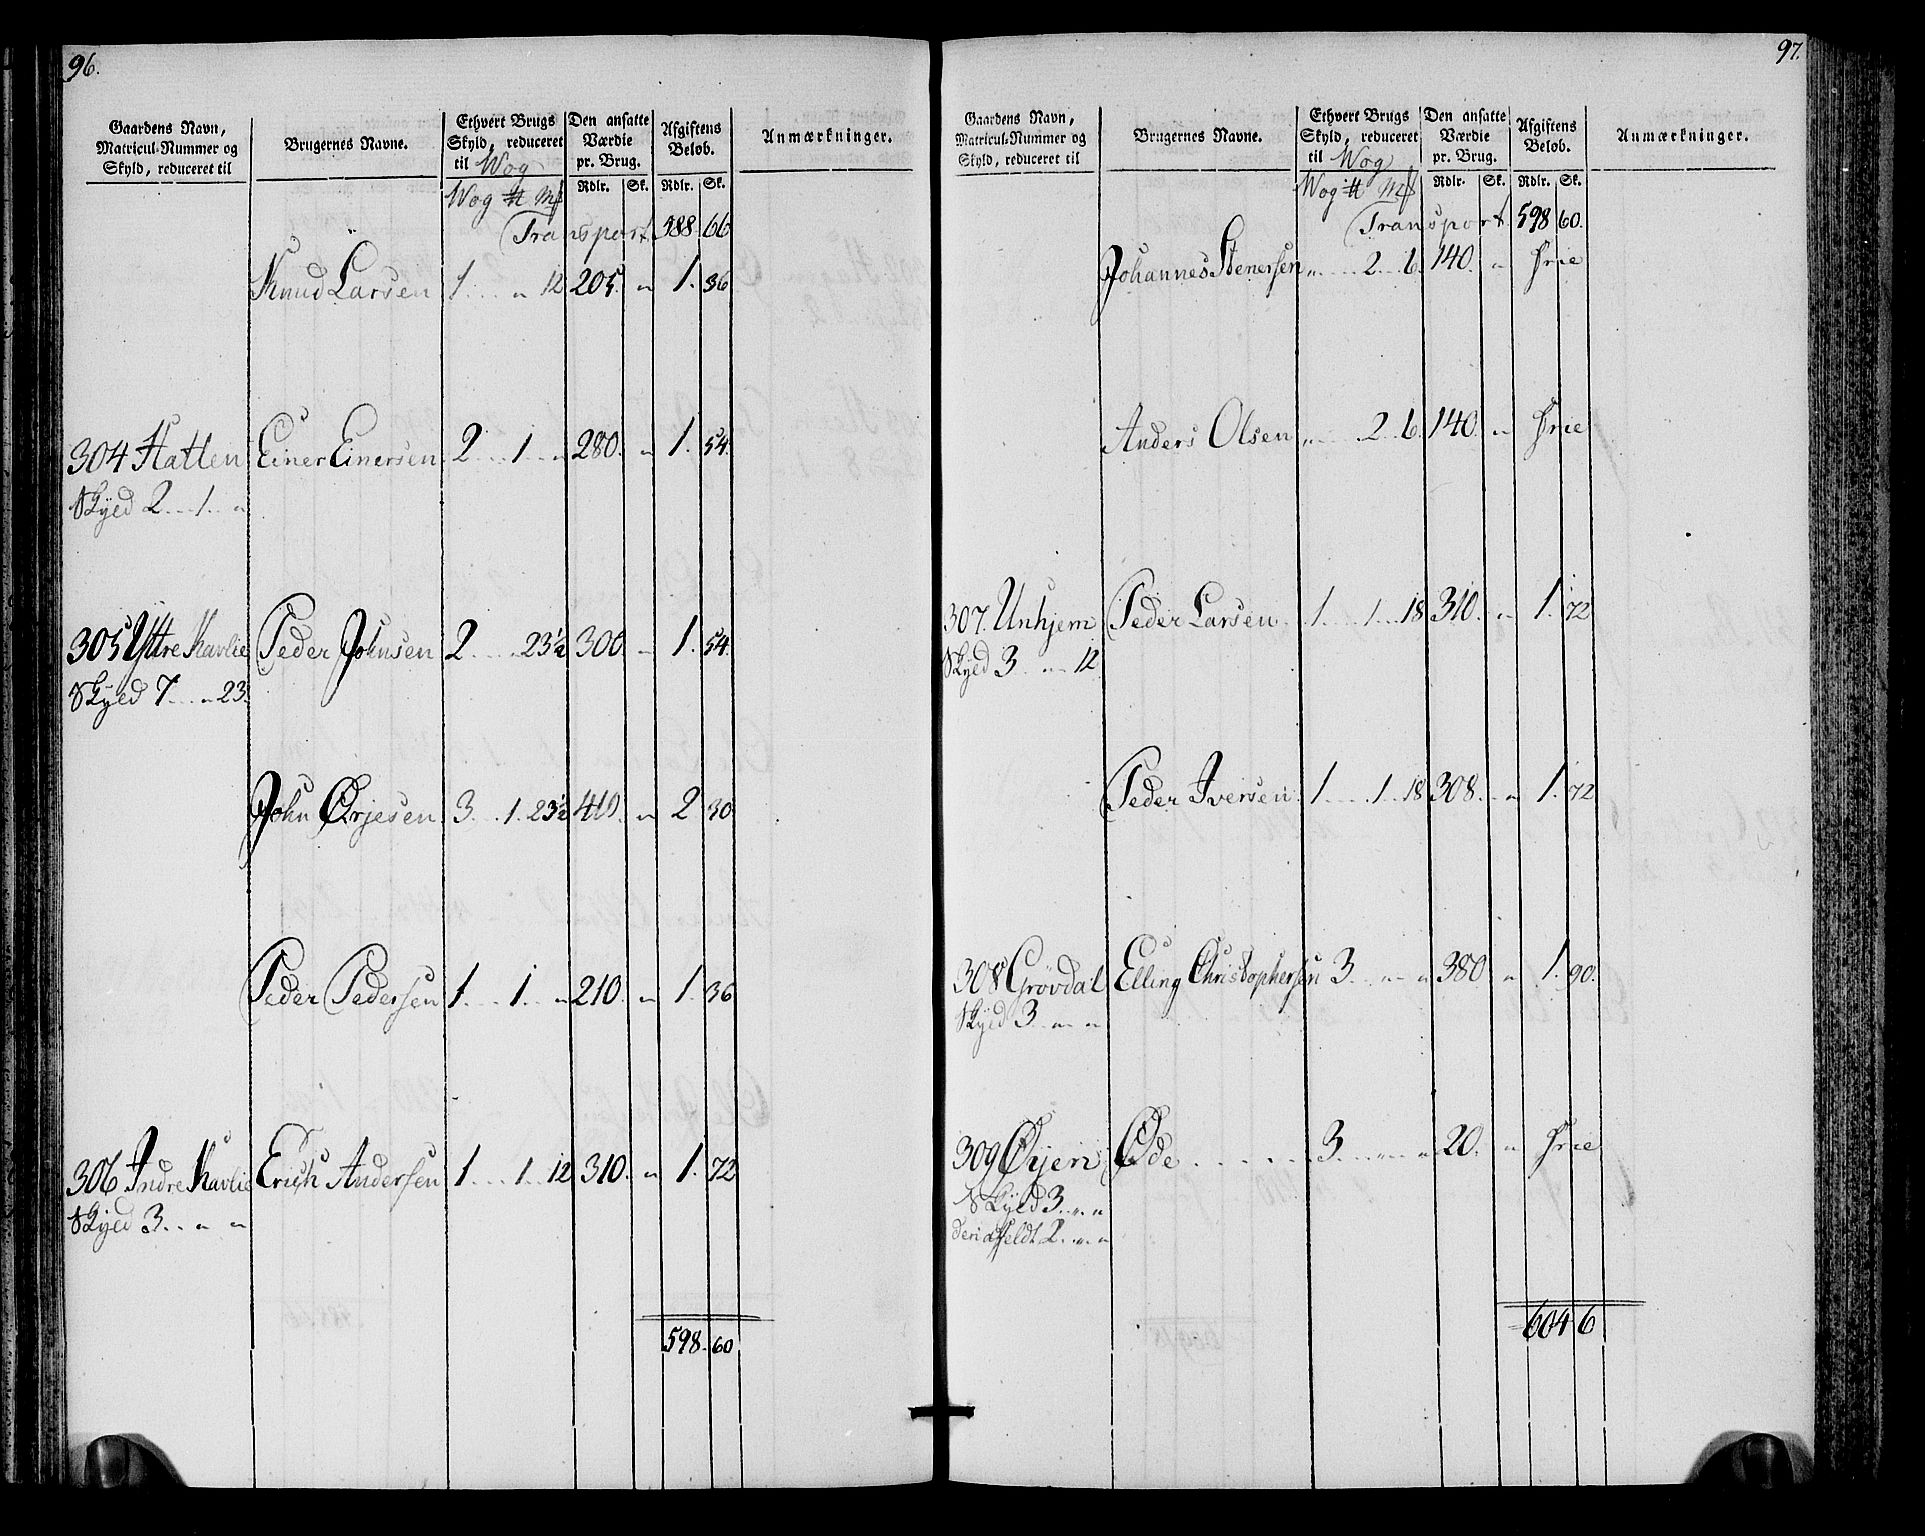 96.
Gaardens Navn, Matricul-Nummer og Skyld, reduceret til | Brugernes Navne. | Ethvert Brugs Skyld, reduceret til Wog | Den ansatte Værdie pr. Brug. | Afgiftens Beløb. | Anmærkninger.
Wog ℔ Mk | Rdlr. | Sk. | Rdlr. | Sk.
Transport 588 66
Knud Larsen 1 .... „ 12 205. „ 1. 36
304 Hatlen Einer Einersen 2 ... 1 .. „ 280. „ 1. 54.
Skyld 2 ... 1 .. „
305 Yttre Kavlie Peder Johnsen 2 .... 23½ 300. „ 1. 54.
Skyld 7 ... „ 23.
John Ørjesen 3 ... 1. 23½ 410. „ 2 30
Peder Pedersen 1 .... 1 ... „ 210. „ 1. 36
306 Indre Kavlie Erich Andersen 1 .... 1. 12 310. „ 1. 72
Skyld 3 .. „ „
598. 60
97.
Gaardens Navn, Matricul-Nummer og Skyld, reduceret til | Brugernes Navne. | Ethvert Brugs Skyld, reduceret til Wog | Den ansatte Værdie pr. Brug. | Afgiftens Beløb. | Anmærkninger.
Wog ℔ Mk | Rdlr. | Sk. | Rdlr. | Sk.
Transport 598 60.
Johannes Stenersen „ .... 2 .. 6. 140. „ frie
Anders Olsen „ .... 2 .. 6. 140. „ frie
307. Unhjem Peder Larsen 1 .... 1 ... 18 310. „ 1. 72
Skyld 3 .. „ 12
Peder Iversen 1 .... 1 .. 18 308. „ 1. 72
308 Grøvdal Elling Christophersen 3 .. „ „ 380 „ 1. 90.
Skyld 3 .. „ „
309 Ørjen Øde .... 3 .... „ „ 20. „ frie
Skyld 3 .. „ „
deraf feldt 2 .. „ „
604 6